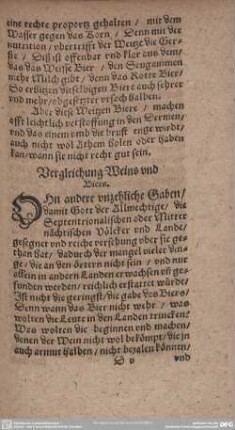 eine rechte proportz gehalten / mit dem
Wasser gegen das Korn / Denn mit der
nutrition / vbertrifft der Weitze die Ger-
ste / Diß ist offenbar vnd klar aus dem /
das das Weisse Bier / den Seugammen
mehr Milch gibt / denn das Rotte Bier /
So erhitzen dieselbigen Biere auch sehrer
vnd mehr / obgesetzter vrsach halben.
Aber diese Weitzen Biere / machen
offt leichtlich verstoffung in den Dermen /
vnd das einem vmb die brust enge wirdt /
auch nicht wol Athem holen oder haben
kan / wann sie nicht recht gut sein.
Vergleichung Weins vnd
Biers.
OHn andere vnzehliche Gaben /
damit Gott der Allmechtige / die
Septentrionalischen oder Mitter
nächtischen Völcker vnd Lande /
gesegnet vnd reiche versehung vber sie ge-
than hat / dadurch der mangel vieler din-
ge / die an den örtern nicht sein / vnd nur
allein in andern Landen erwachsen vñ ge-
funden werden / reichlich erstattet würde /
Ist nicht die geringste / die gabe des Biers /
Denn wann das Bier nicht wehr / was
wolten die Leute in den Landen trincken?
Was wolten die beginnen vnd machen /
denen der Wein nicht wol bekömpt / die jn
auch armut halben / nicht bezalen könnten /
vnd